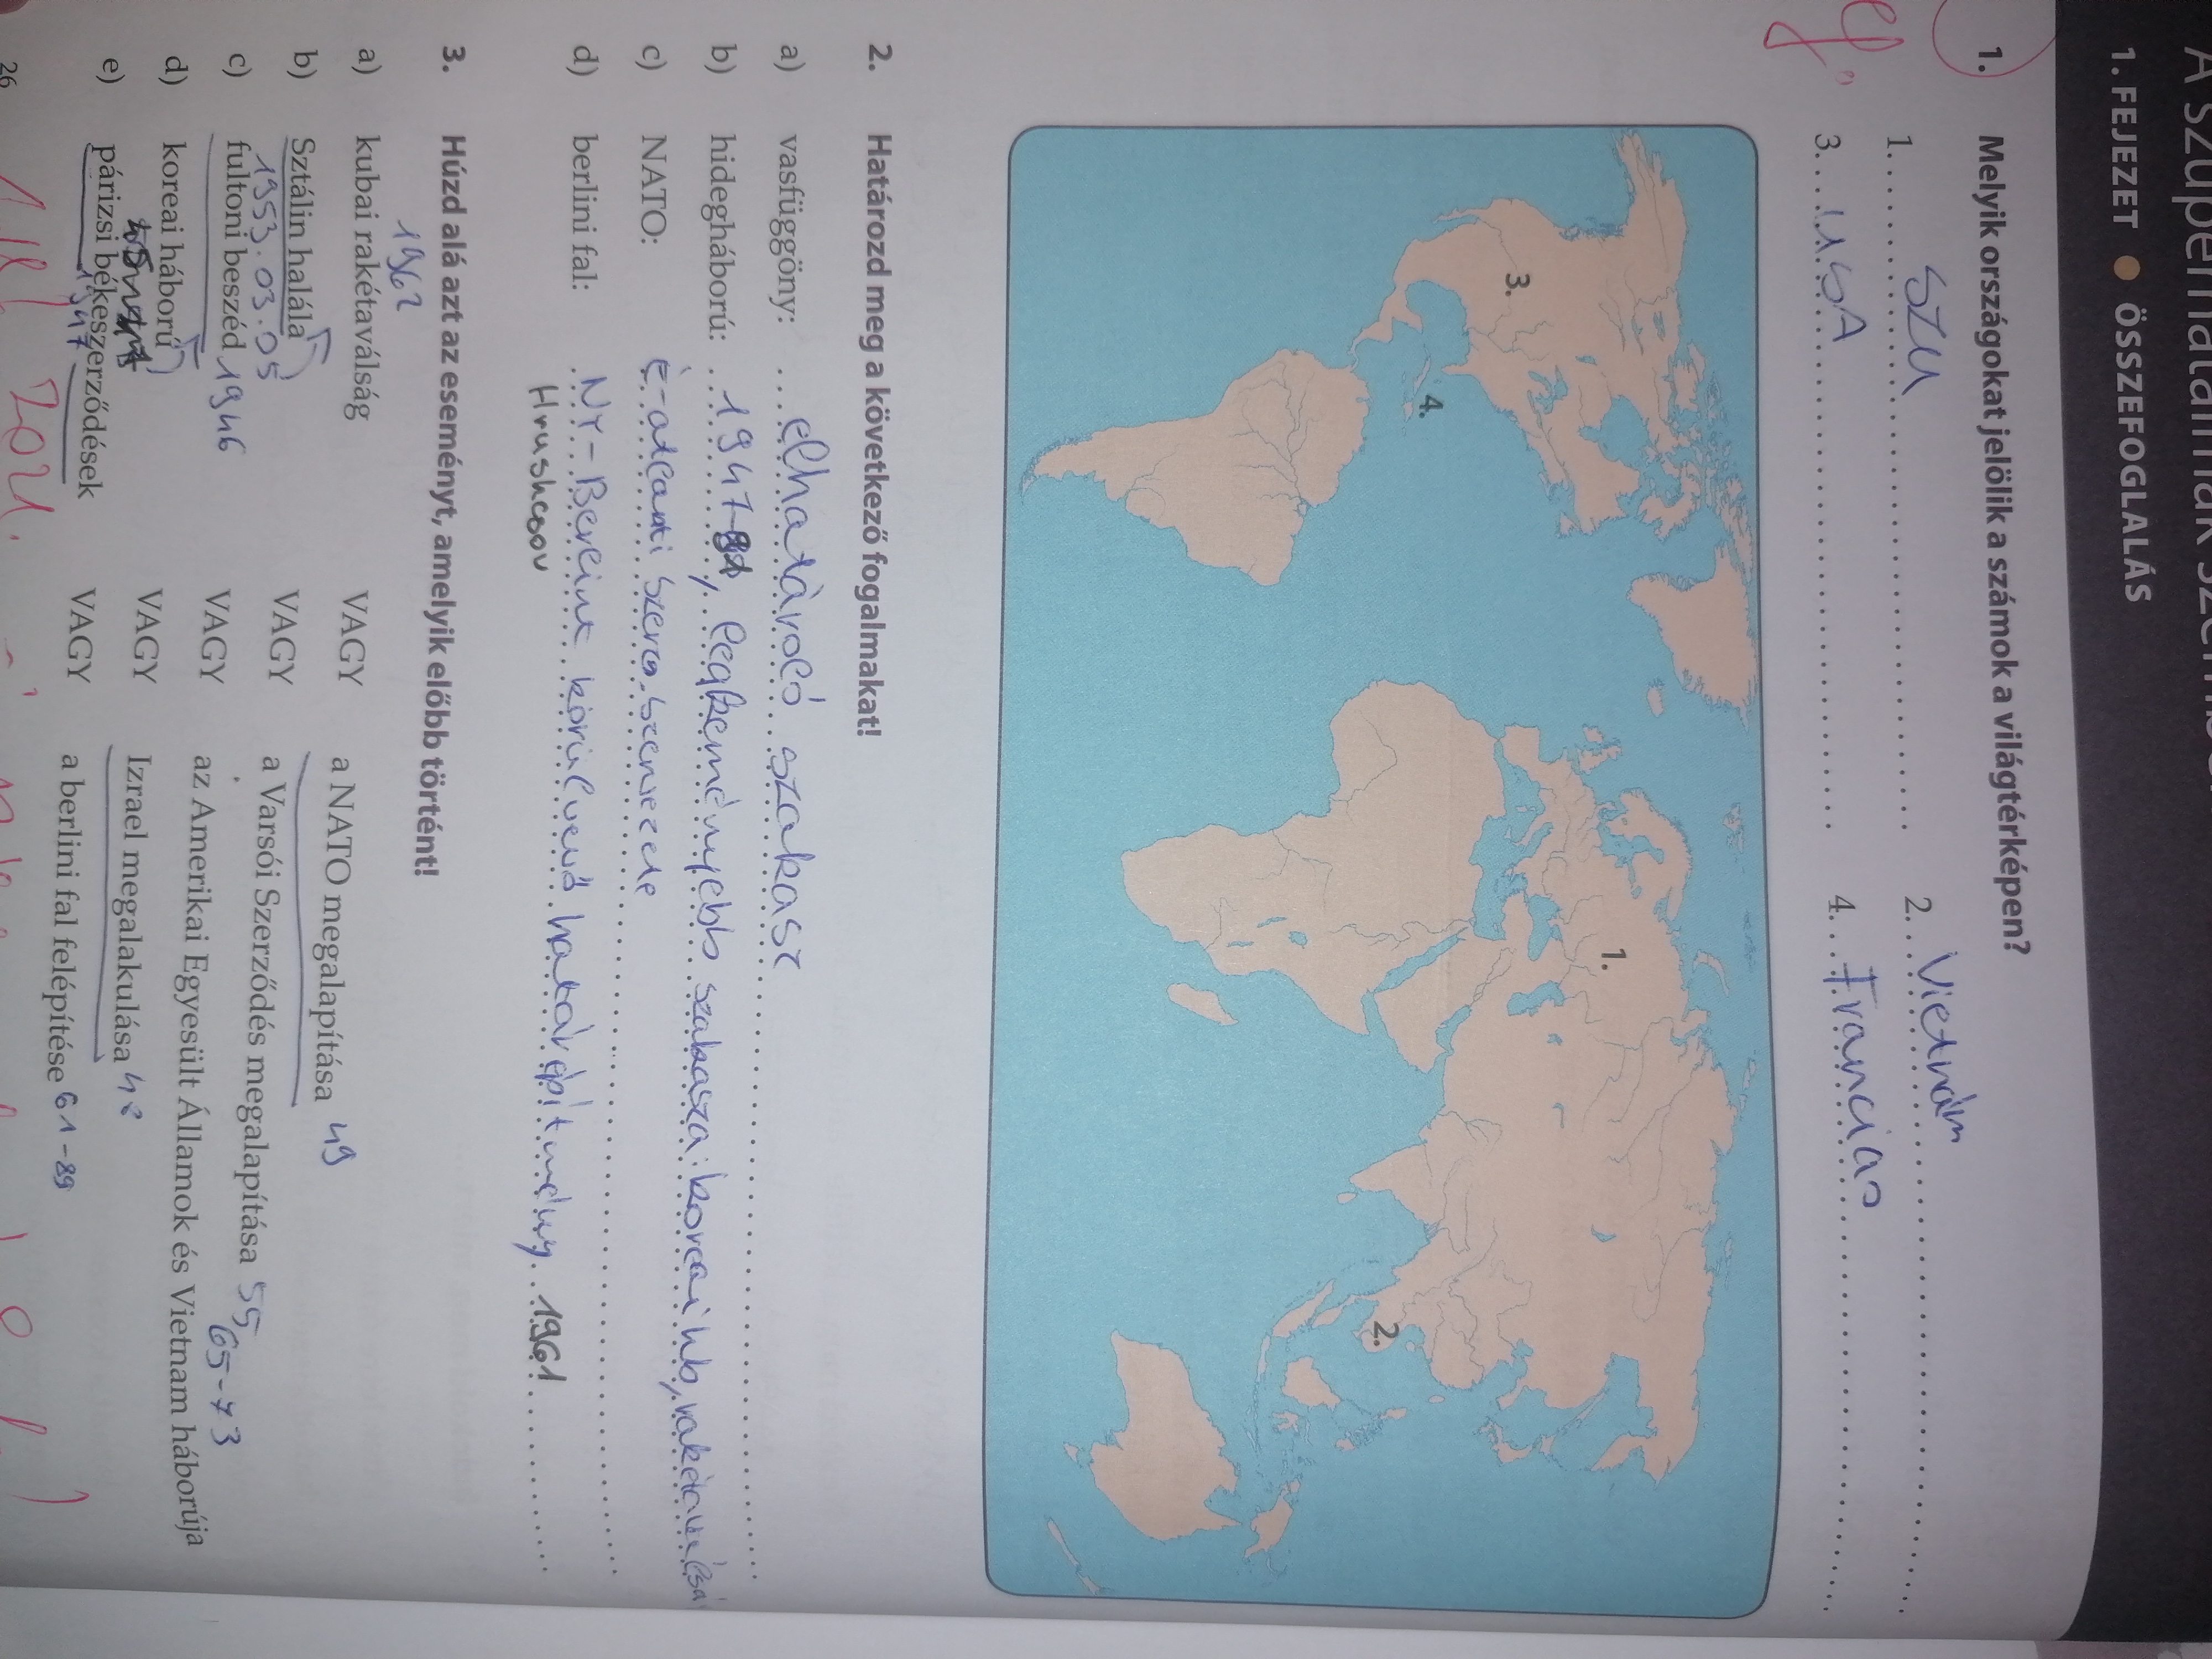 1. FEJEZET ● ÖSSZEFOGLALÁS
1. Melyik országokat jelölik a számok a világtérképen?
1. SZU 2. Vietnám
3. USA 4. Francia
3. 4. 1. 2.
2. Határozd meg a következő fogalmakat!
a) vasfüggöny: elhatároló szakasz
b) hidegháború: 1947-91, legkeményebb szakasza: koreai hb, rakétaválság
c) NATO: É-atlanti Szerz. Szervezete
d) berlini fal: NY-Berlint körülvevő határépítmény 1961
Hrushcsov
3. Húzd alá azt az eseményt, amelyik előbb történt!
1962
a) kubai rakétaválság VAGY a NATO megalapítása 49
b) Sztálin halála VAGY a Varsói Szerződés megalapítása 55
1953.03.05 65-73
c) fultoni beszéd 1946 VAGY az Amerikai Egyesült Államok és Vietnam háborúja
d) koreai háború VAGY Izrael megalakulása 48
e) párizsi békeszerződések VAGY a berlini fal felépítése 61-89
1947
26